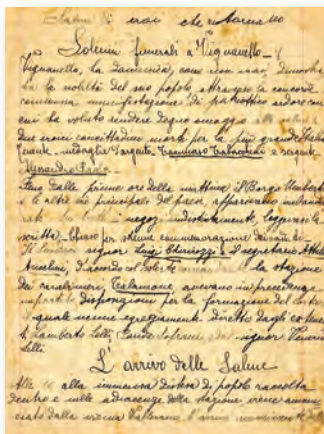 Salme di eroi che tornano
Solenni funerali a Vignanello
Vignanello, la damenica, com non mai, dimostra
la nobiltà del suo popolo attraverso la concorde
commossa manifestazione di patriottico ardore con
cui ha voluto rendere degno omaggio alle salme di
due eroici concittadini morti per la più grande Italia
Tenente medaglia d'argento Tommaso Talacchini e sergente
Fino dalle prime ore della mattina il Borgo Umberto
e le altre vie principali del paese, apparivano imbandie
rate tutti i negozi indistintamente, leggevasi la
scritta: Chiuso per solenne commemorazione dei caduti
Il signor Luigi e il segretario Attilio
Anselmi, d'accordo col la stazione
dei carabinieri, Calamone avevano in precedenza
impartito disposizioni per la formazione del corteo
quale venne egregiamente diretto dagli ex tenenti
Lamberto Lelli, signor
Lelli
L'arrivo delle Salme
Alle 10 alla immensa distesa di popolo raccolta
dentro e nelle adiacenze della stazione viene annun
ciato dalla vicina Vallerano l'arrivo